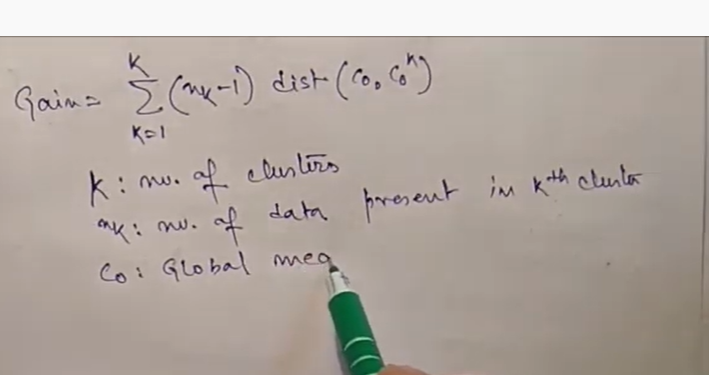 Gain = K Σ K=1 (nk-1) dist (C₀, C₀ᵏ)
K : no. of clusters
nk : no. of data present in kth cluster
C₀ : Global mea